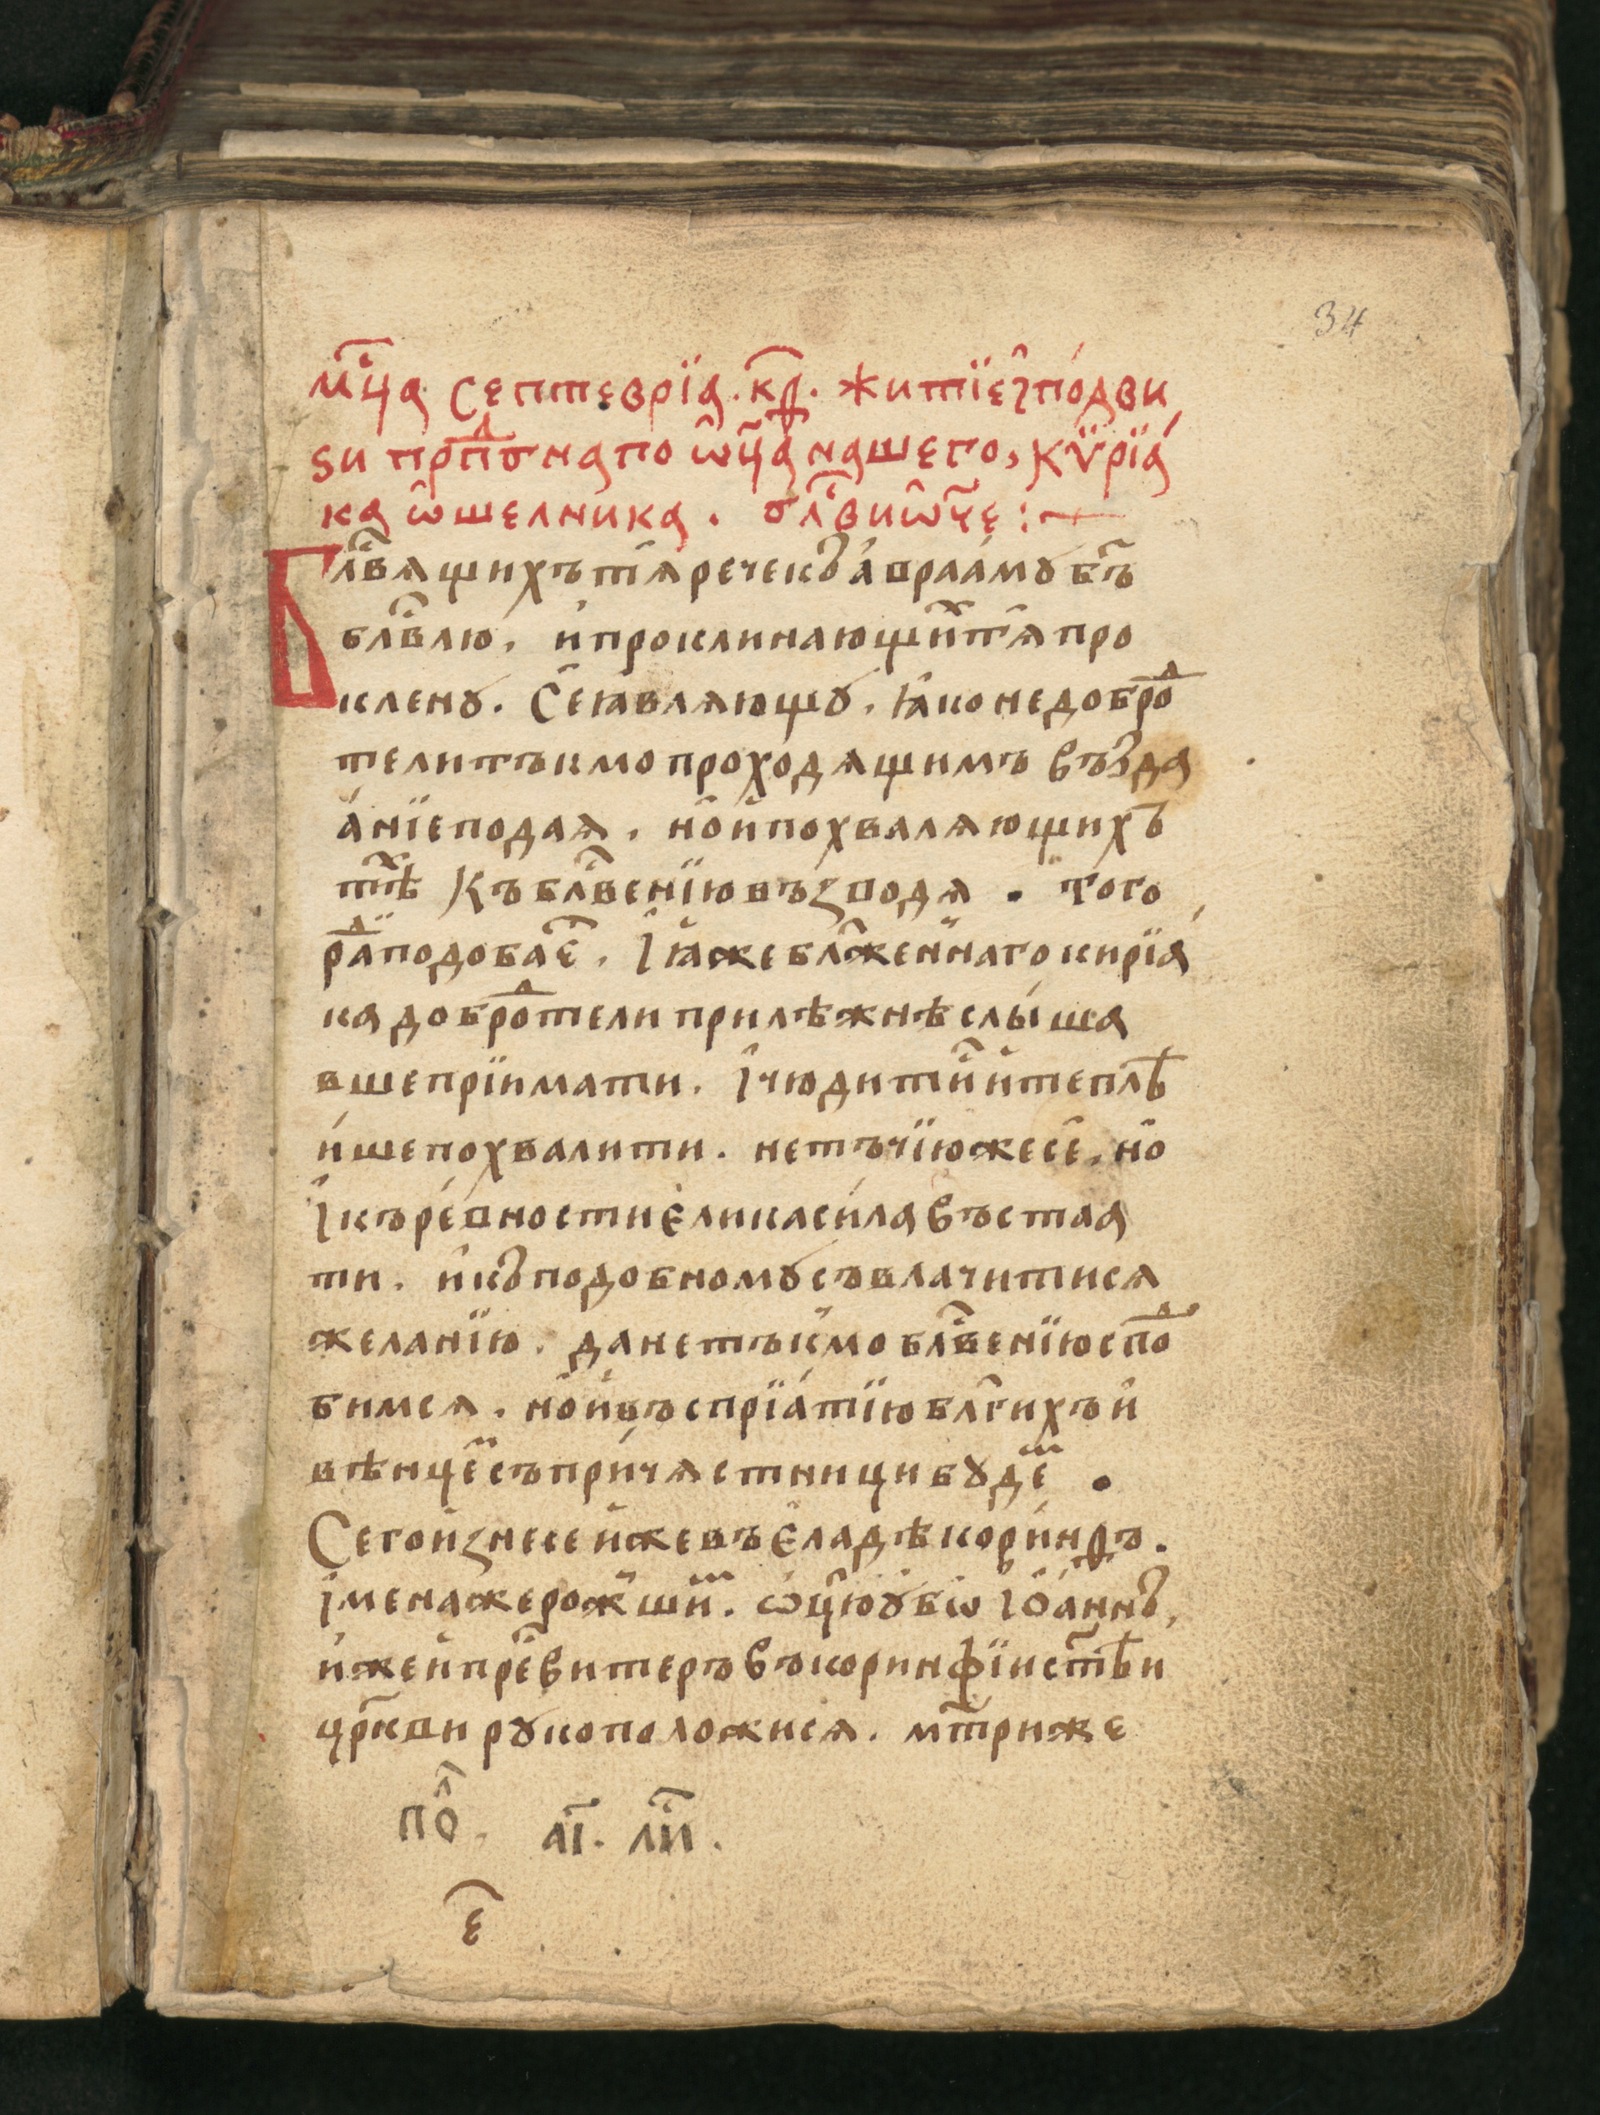 34
мⷭ҇ца септеврїа. к҃ѳ. житїе і҆ по́дви
ѕи прпⷣбнаго ѡ҆ц҃а нашего, кѷрїа́
ка ѡ҆шелника. бл҃ви ѡ҆ч҃е :~
Бл҃вѧщихъ тѧ̀ рече къ а҆враа́мꙋ бг҃ъ
блⷭ҇влю, и҆ проклинающиⷯ тѧ̀ про
кленꙋ. Сѐ ꙗ҆влѧющꙋ, ꙗ҆ко не доброⷣ
тели тъкмо проходѧщимъ възда
а́нїе подаѧ, но̀ и҆ похвалѧющихъ
тⷯѣ къ блⷭ҇венїю възводѧ . того
раⷣ подобаеⷮ. І҆ ꙗ҆же блж҃еннаго кирїа́
ка доброⷣтели прилѣжнѣ слы́ша
вше прїимати. І҆ чюдитиⷭ҇ и҆ теплѣ
и҆ше похвалити. не тъчїю же сѐ, но̀
І҆ къ ре́вности є҆лика си́ла въстаа
ти. и҆ къ подобномꙋ съвлачитисѧ
желанїю. да не тъкмо блⷭ҇венїю споⷣ
бимсѧ. но̀ и҆ въспрїа́тїю блг҃ихъ и҆
вѣнцеⷨ съпри́чѧстници бꙋдеⷨ .
Сего и҆знесе и҆же въ є҆ладѣ кори́нѳъ.
І҆мена же рожⷣшиⷨ. ѡ҆ц҃ю ᲂу҆бѡ і҆ѡа́ннъ,
и҆же и҆ пре́звитеръ въ коринфїи ст҃ѣи
цр҃кви рꙋкоположисѧ. мт҃ри же
поⷧ҇. а҃і. лиⷭ҇.
є҃